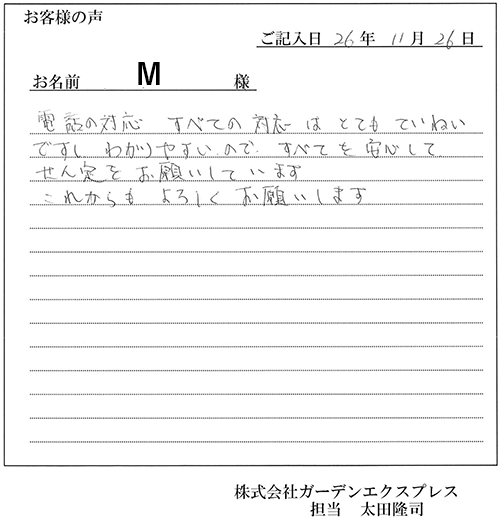 お客様の声
ご記入日 26年 11月 26日
お名前 M 様
電話の対応 すべての対応は とても ていねい
ですし わかりやすいので すべてを安心して
せん定を お願いして います
これからも よろしく お願いします
株式会社ガーデンエクスプレス
担当 太田隆司